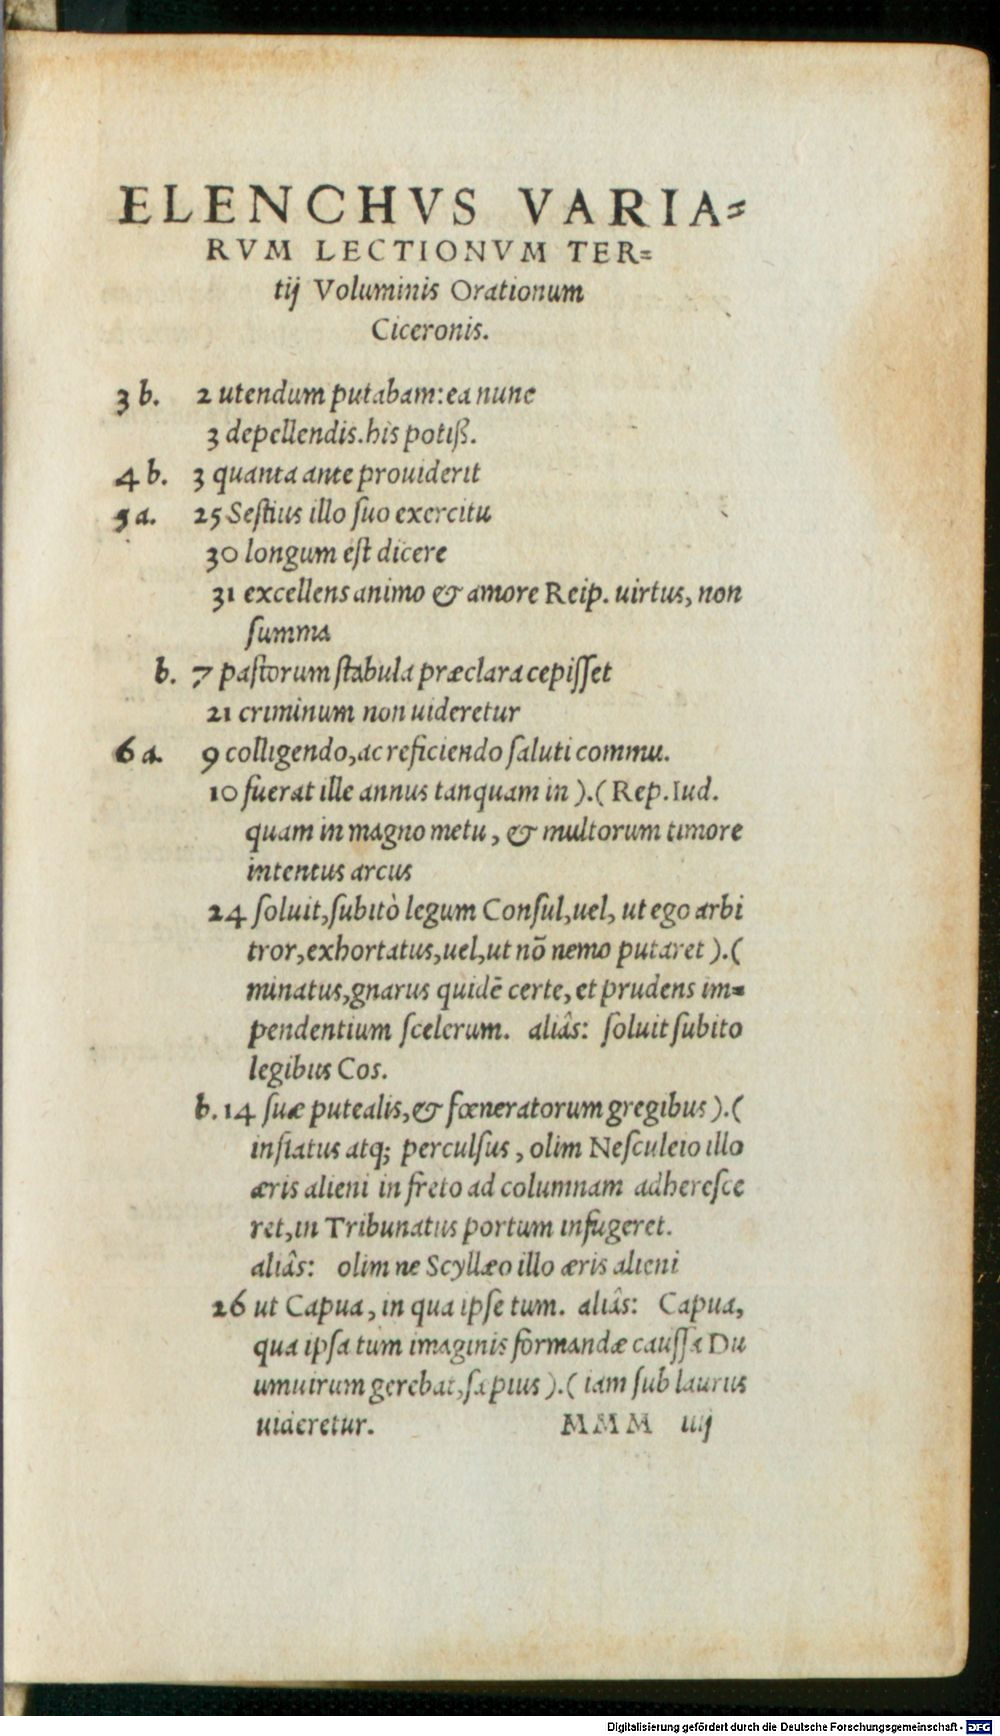 ELENCHVS VARIA=
RVM LECTIONVM TER=
tij Voluminis Orationum
Ciceronis.
3 b. 2 utendum putabam: ea nunc
3 depellendis. his potiß.
4 b. 3 quanta ante prouiderit
5 a. 25 Seſtius illo ſuo exercitu
30 longum eſt dicere
31 excellens animo & amore Reip. uirtus, non
ſumma
b. 7 paſtorum ſtabula præclara cepiſſet
21 criminum non uideretur
6 a. 9 colligendo, ac reficiendo ſaluti commu.
10 fuerat ille annus tanquam in ).( Rep. Iud.
quam in magno metu, & multorum timore
intentus arcus
24 ſoluit, ſubitò legum Conſul, uel, ut ego arbi
tror, exhortatus, uel, ut nõ nemo putaret ).(
minatus, gnarus quidẽ certe, et prudens im=
pendentium ſcelerum. aliâs: ſoluit ſubito
legibus Cos.
b. 14 ſuæ putealis, & fœneratorum gregibus ).(
inflatus atq; perculſus, olim Neſculeio illo
æris alieni in freto ad columnam adhereſce
ret, in Tribunatus portum infugeret.
aliâs: olim ne Scyllæo illo æris alieni
26 ut Capua, in qua ipſe tum. aliâs: Capua,
qua ipſa tum imaginis formandæ cauſſa Du
umuirum gerebat, ſæpius ).( iam ſub laurus
uideretur. MMM iiij
Digitalisierung gefördert durch die Deutsche Forschungsgemeinschaft - DFG